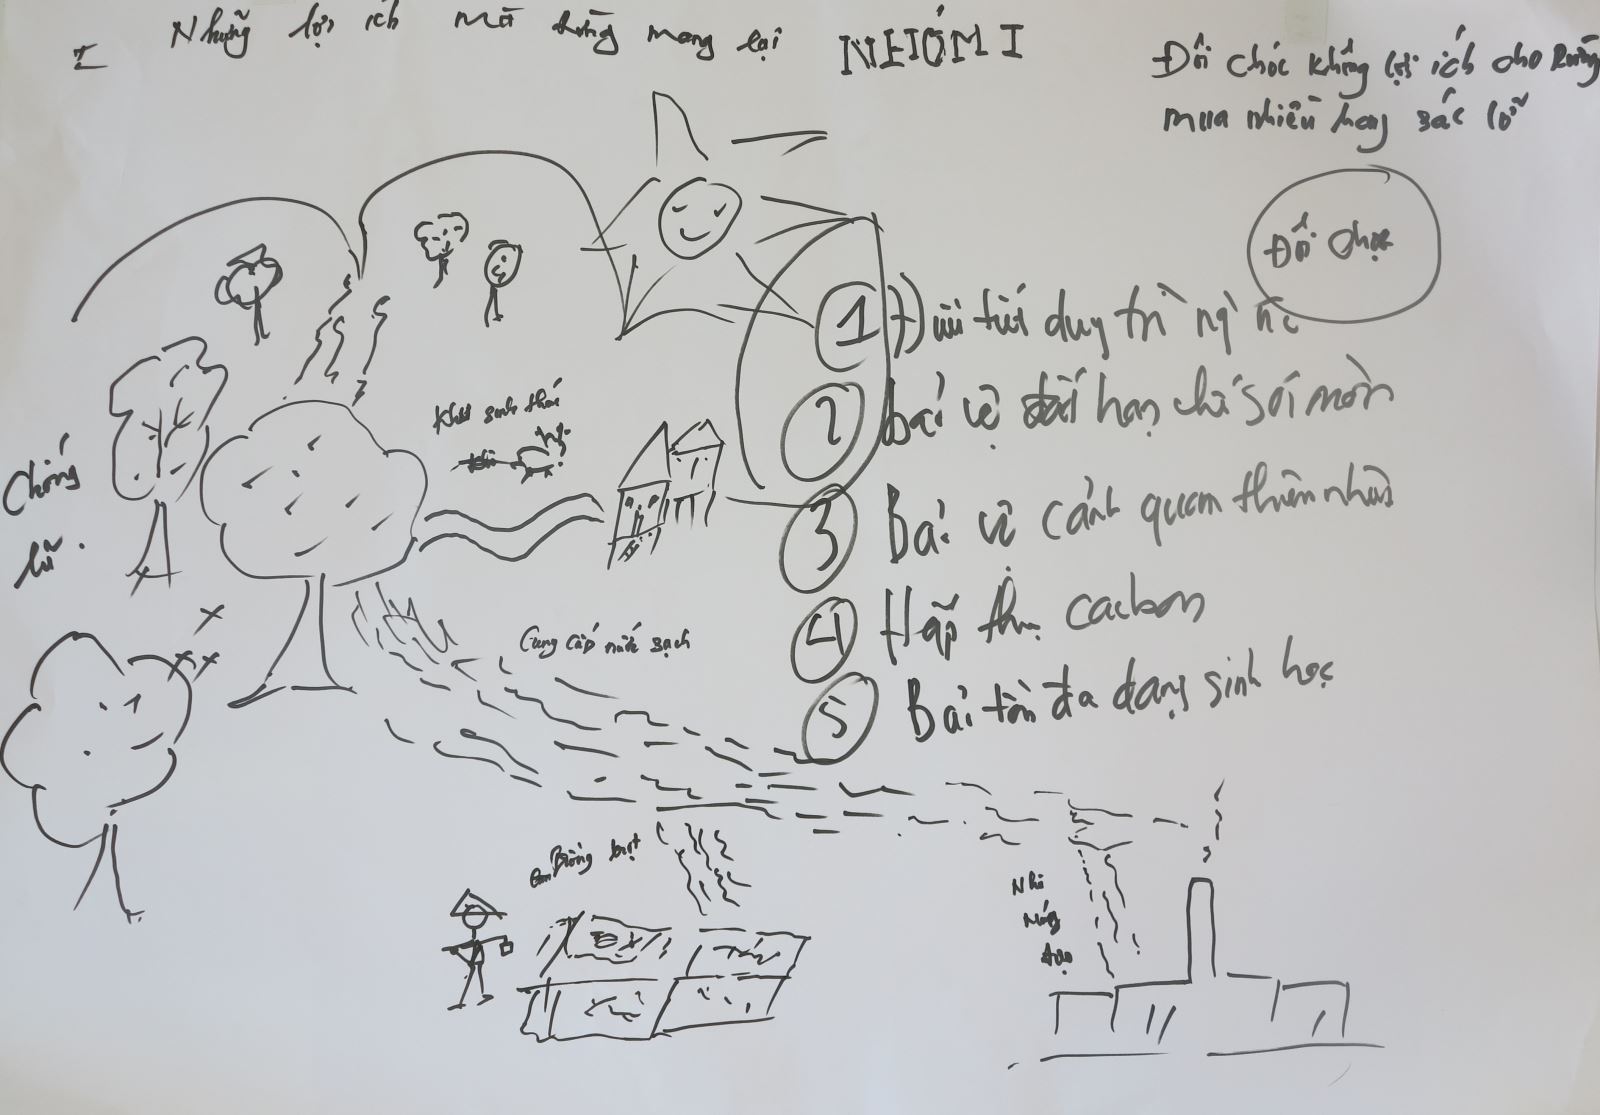 I Những lợi ích mà rừng mang lại
NHÓM I
Đồi chóc không lợi ích cho Rừng
mưa nhiều hay sác lỡ
Đồi chọc
1 duy trì
2 bải vệ đất hạn chế sói mòn
3 Bải vệ cảnh quan thiên nhiên
4 Hấp thụ cacbon
5 Bải tồn đa dạng sinh học
Khu sinh thái
Chống
lũ.
Cung cấp nước sạch
Nhà
máy